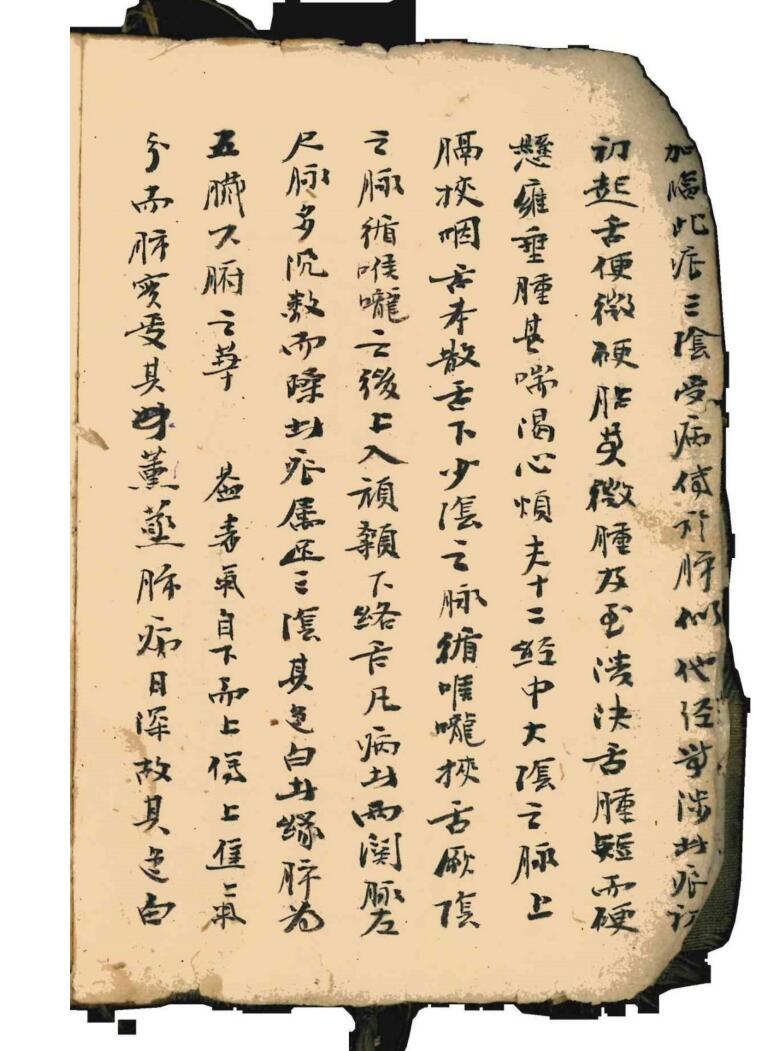 加臨此症三陰受病傳於肝似代经学涉此症
初起舌便微硬胎黄微腫及至溃決舌腫短而硬
懸雍垂腫甚喘渴心煩夫十二經中大陰之脉上
膈挾咽舌本散舌下少陰之脉循喉嚨挾舌厥陰
之脉循喉嚨之後上入頏顙下絡舌凡病此两関脉左
尺脉多沉数而躁此症属足三陰其色白此缘肝为
五臟六腑之華 益毒氣自下而上傷上焦之氣
分而肺實受其薰蒸肺病日深故其色白